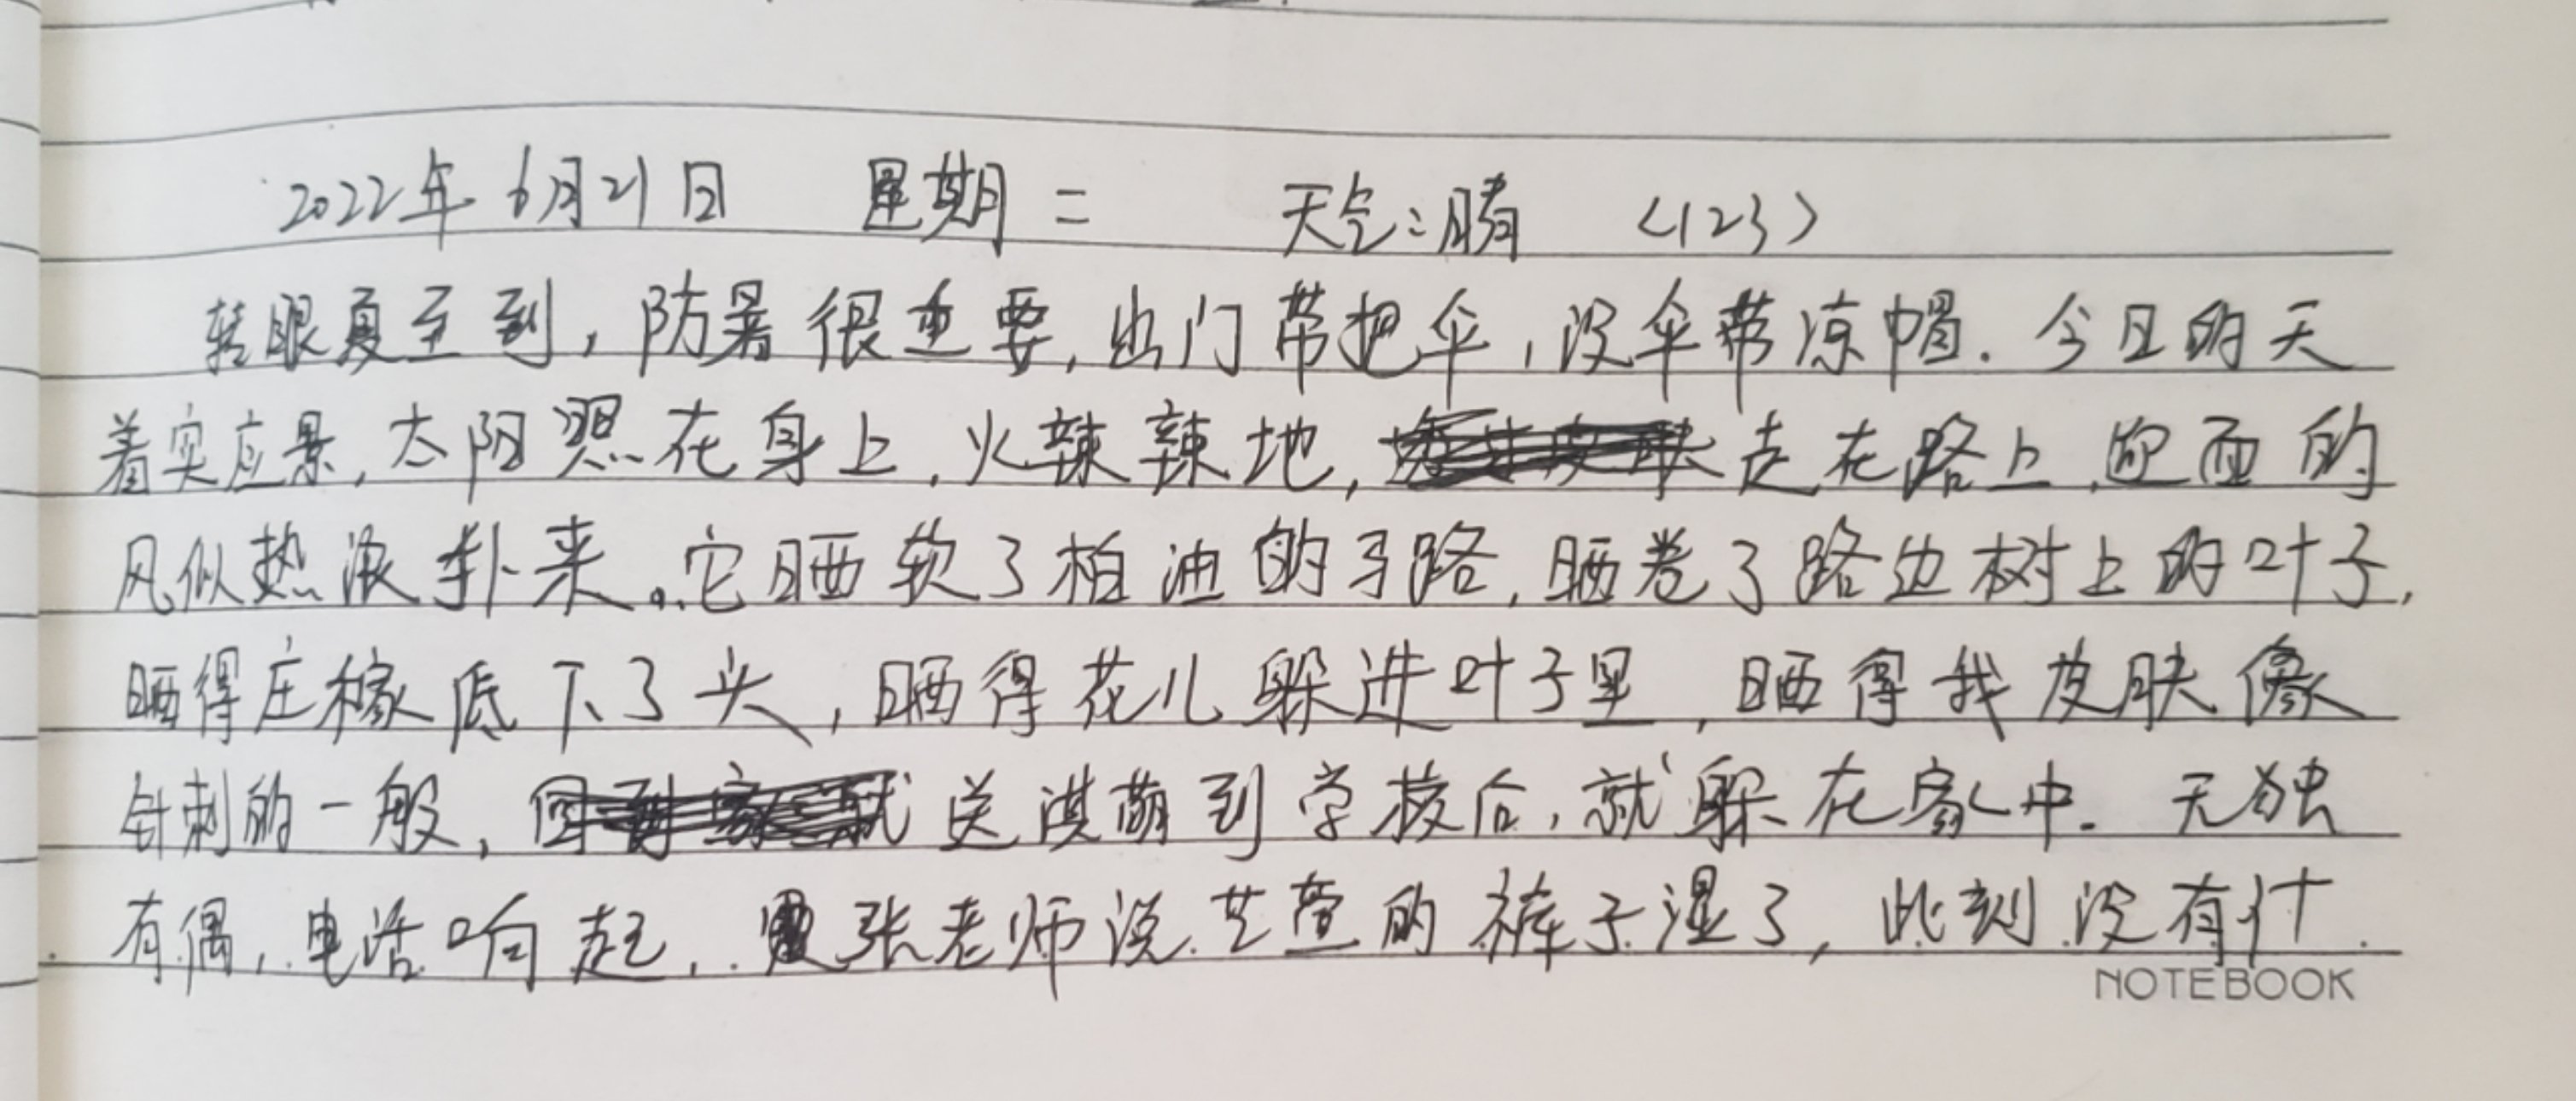 2022年6月21日 星期二 天气:晴 <123>
转眼夏至到,防暑很重要,出门带把伞,没伞带凉帽.今日的天
着实应景,太阳照在身上,火辣辣地,走在路上,迎面的
风似热浪扑来。它晒软了柏油的马路,晒卷了路边树上的叶子,
晒得庄稼低下了头,晒得花儿躲进叶子里,晒得我皮肤像
针刺的一般,送淇萌到学校后,就躲在家中.无独
有偶,电话响起,张老师说芷萱的裤子湿了,此刻没有什
NOTEBOOK